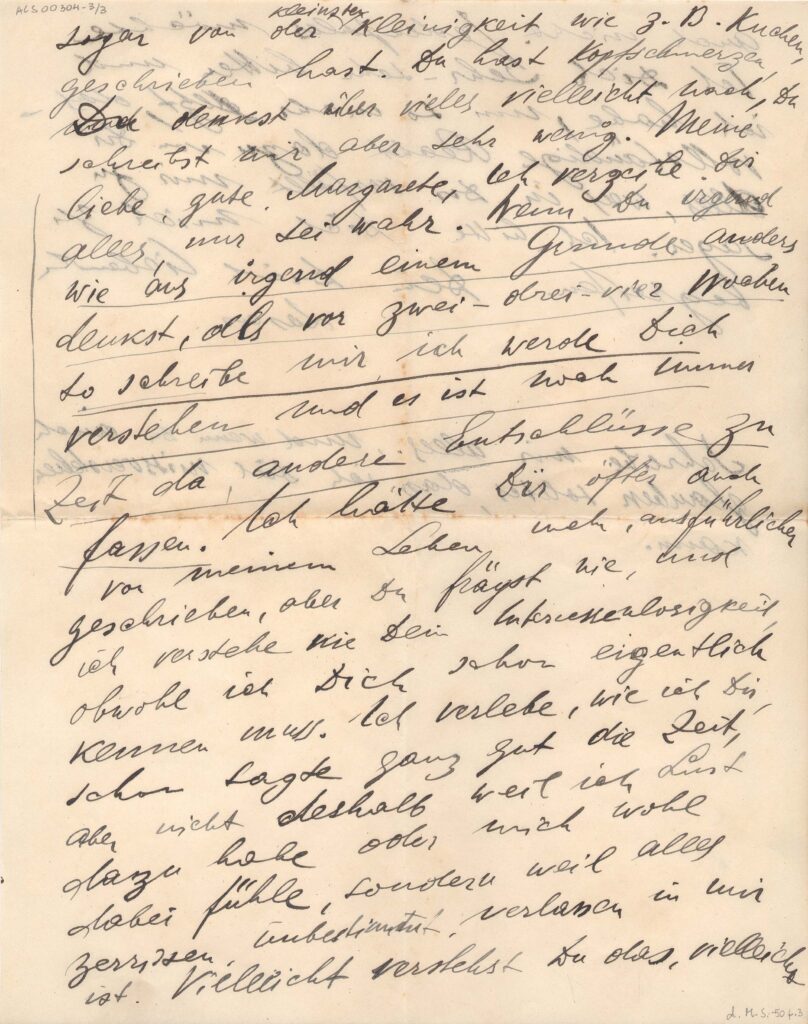 ALS00304-3/3
kleinsten
sogar von der Kleinigkeit wie z. B. Kuchen,
geschrieben hast. Du hast Kopfschmerzen,
denkst über vieles vielleicht nach, Du
schreibst mir aber sehr wenig. Meine
liebe, gute Margarete, ich verzeihe Dir
alles, nur sei wahr. Wenn Du irgend
wie aus irgend einem Grunde anders
denkst, als vor zwei-drei-vier Wochen
so schreibe mir, ich werde Dich
verstehen und es ist noch immer
Zeit da, andere Entschlüsse zu
fassen. Ich hätte Dir öfter auch
von meinem Leben mehr, ausführlicher
geschrieben, aber Du frägst nie, und
ich verstehe nie Dein Interessenlosigkeit,
obwohl ich Dich schon eigentlich
kennen muss. Ich verlebe, wie ich Dir,
schon sagte ganz gut die Zeit,
aber nicht deshalb weil ich Lust
dazu habe oder mich wohl
dabei fühle, sondern weil alles
zerrissen, unbestimmt, verlassen in mir
ist. Vielleicht verstehst Du das, vielleicht